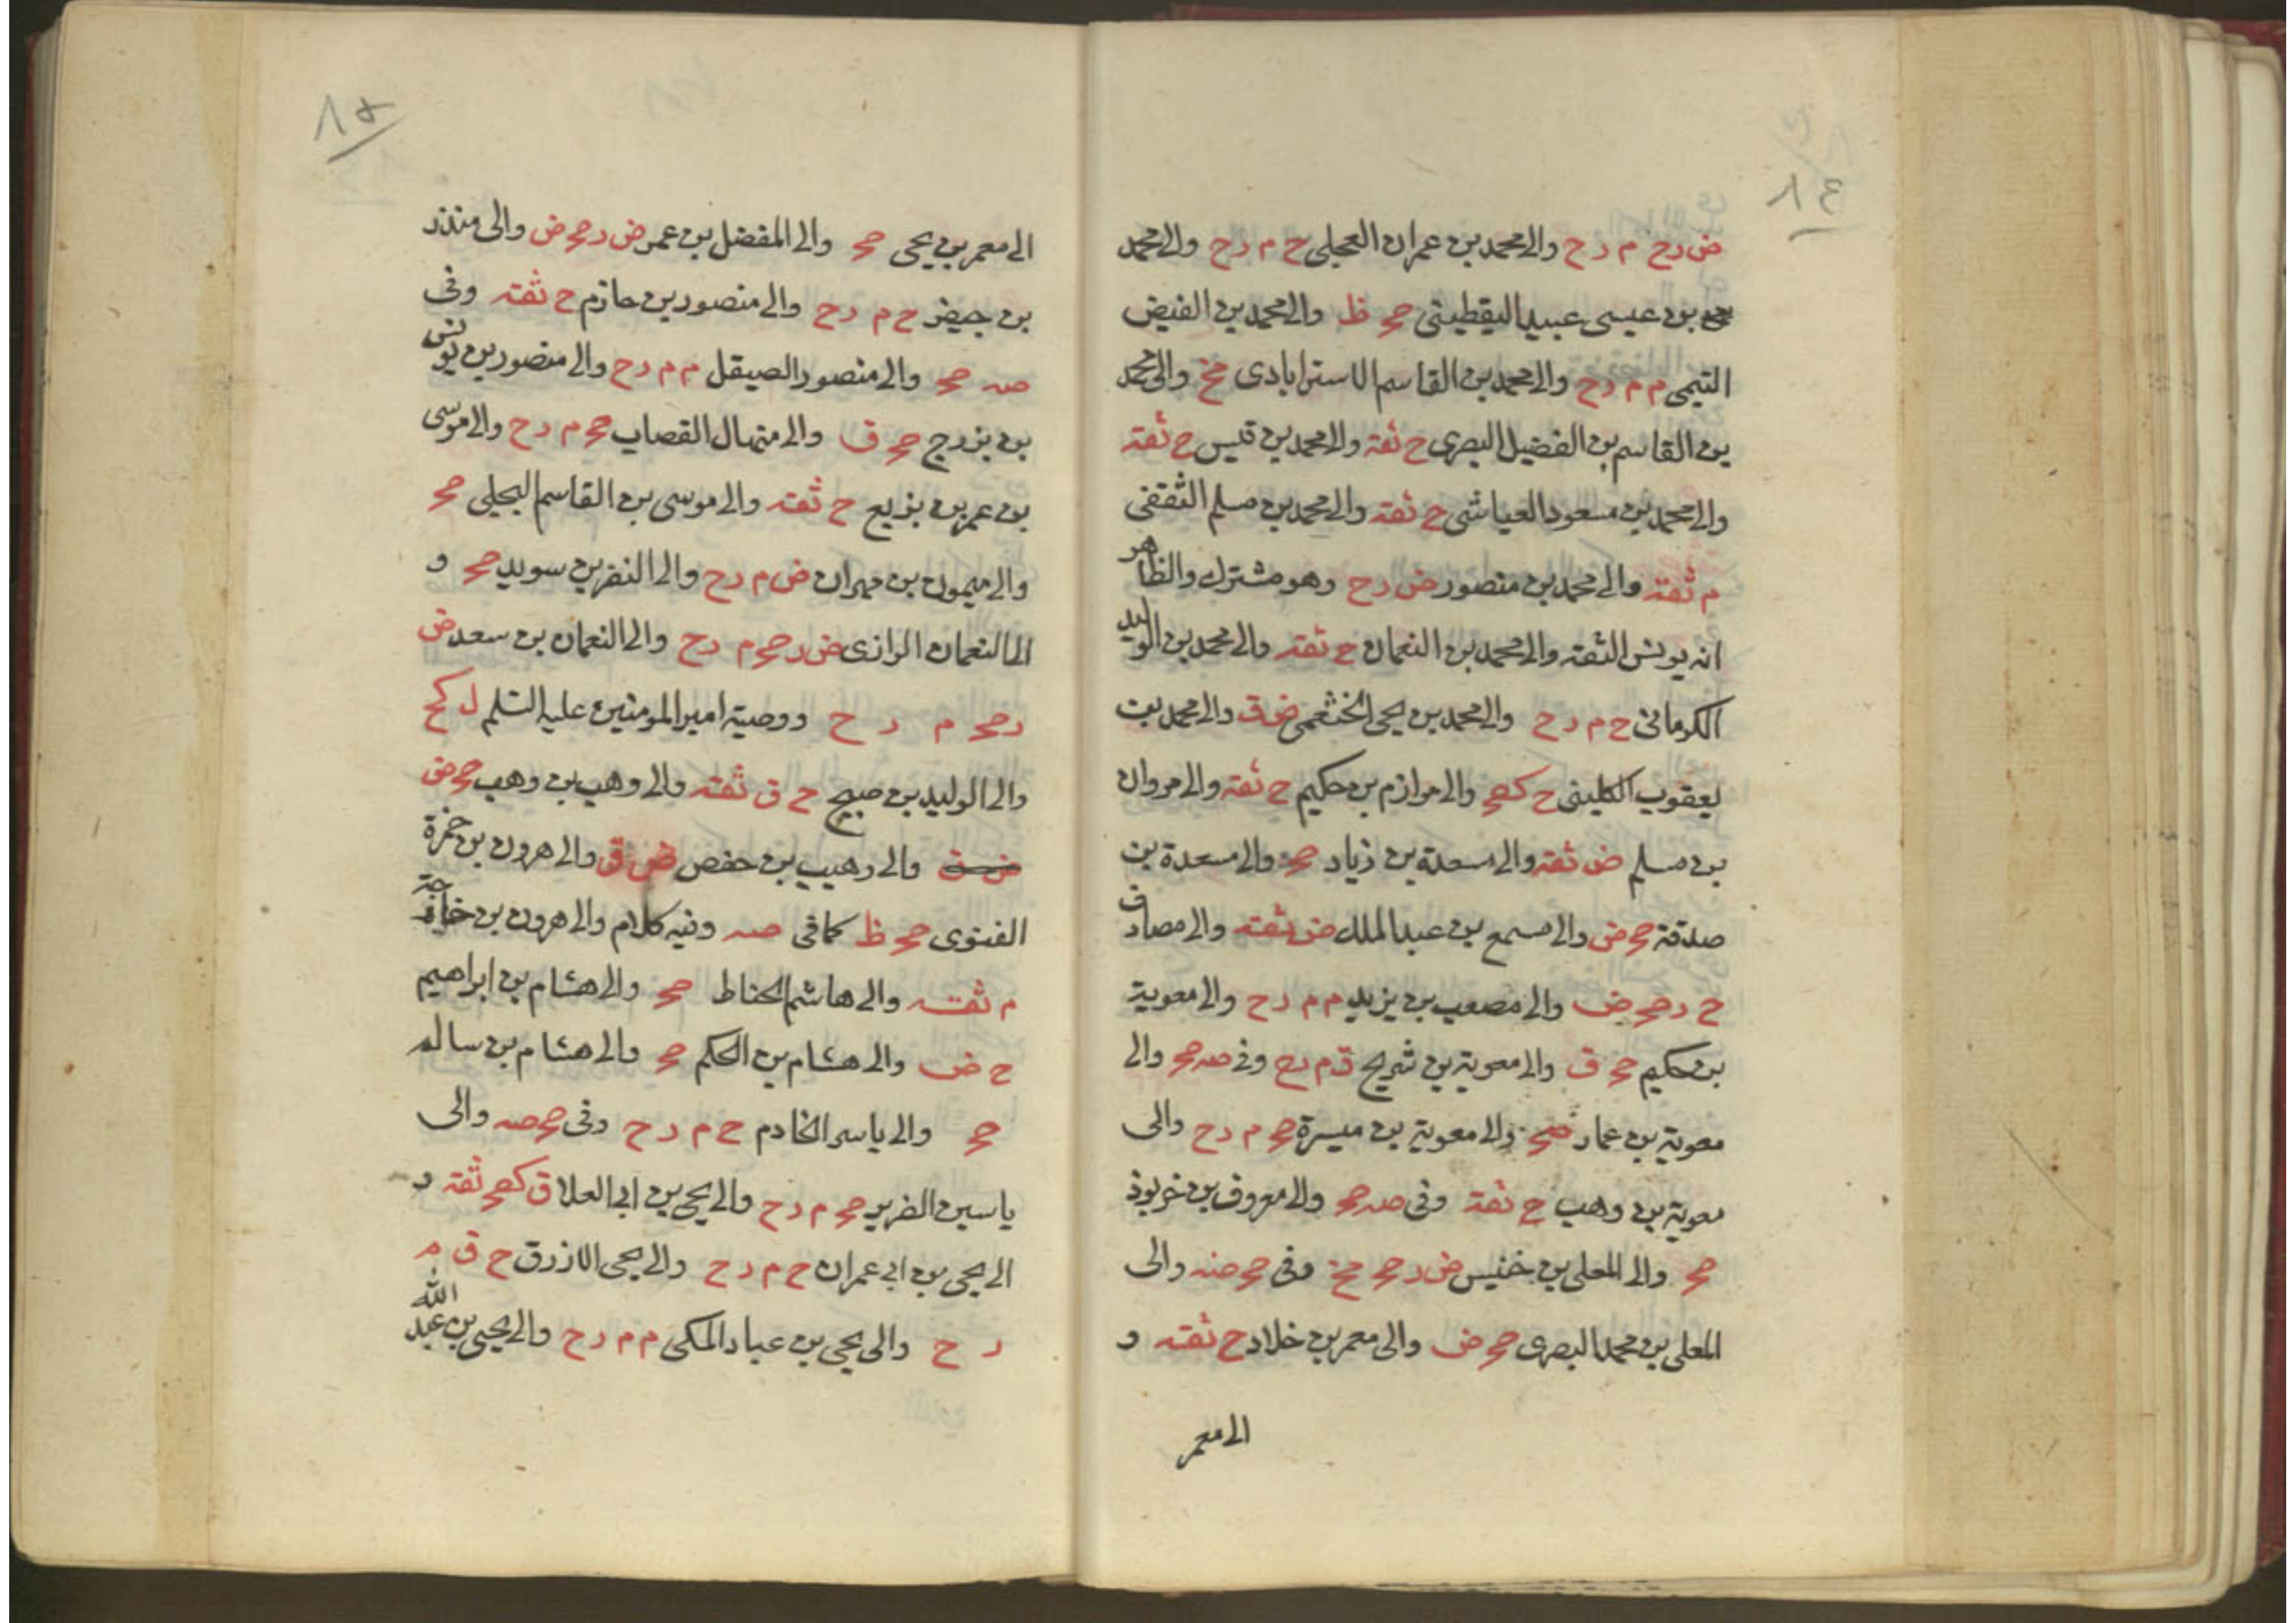 ٨٤
ض رح م رح والى محمد بن عمران العجلى ح م رح والى محمد
بن عيسى عبيد اليقطينى صح ظ والى محمد بن الفيض
التيمى م م رح والى محمد بن القاسم الاسترابادى مخ والى محمد
بن القاسم بن الفضيل البصرى ح ثقة والى محمد بن قيس ح ثقة
والى محمد بن مسعود العياشى ح ثقة والى محمد بن مسلم الثقفى
م ثقة والى محمد بن منصور ض رح وهو مشترك والظاهر
انه يونس الثقة والى محمد بن النعمان ح ثقة والى محمد بن الوليد
الكرمانى ح م رح والى محمد بن يحيى الخثعمى ض ق والى محمد بن
يعقوب الكلينى ح كصح والى مرازم بن حكيم ح ثقة والى مروان
بن مسلم ض ثقة والى مسعدة بن زياد صح والى مسعدة بن
صدقة صح ض والى مسمع بن عبد الملك ض ثقة والى مصادف
ح ر صح ض والى مصعب بن يزيد م م رح والى معوية
بن حكيم صح ق والى معوية بن شريح ق م رح وفى صه صح والى
معوية بن عمار صح والى معوية بن ميسرة صح م رح والى
معوية بن وهب ح ثقة وفى صه صح والى معروف بن خربوذ
صح والى المعلى بن خنيس ض ر صح مخ وفى صح صه والى
المعلى بن محمد البصرى صح ض والى معمر بن خلاد ح ثقة و
الى معمر
٨٥
الى معمر بن يحيى صح والى المفضل بن عمر ض ر صح ض والى منذر
بن جيفر ح م رح والى منصور بن حازم ح ثقة وفى
صه صح والى منصور الصيقل م م رح والى منصور بن يونس
بن بزرج صح ق والى منهال القصاب صح م رح والى موسى
بن عمر بن بزيع ح ثقة والى موسى بن القاسم البجلى صح
والى ميمون بن مهران ض م رح والى النضر بن سويد صح و
الى النعمان الرازى ض ر صح م رح والى النعمان بن سعد ض
ر صح م ر ح ووصية امير المومنين عليه السلم ل كح
والى الوليد بن صبيح ح ق ثقة والى وهب بن وهب صح ض
والى وهيب بن حفص ض ق والى هرون بن حمزة
الغنوى صح ظ كما فى صه وفيه كلام والى هرون بن خارجة
م ثقة والى هاشم الحناط صح والى هشام بن ابراهيم
ح ض والى هشام بن الحكم صح والى هشام بن سالم
صح والى ياسر الخادم ح م رح وفى صح صه والى
ياسين الضرير صح م رح والى يحيى بن ابى العلا ق كصح ثقة و
الى يحيى بن ابى عمران ح م رح والى يحيى الازرق ح ق م
ر ح والى يحيى بن عباد المكى م م رح والى يحيى بن عبد الله